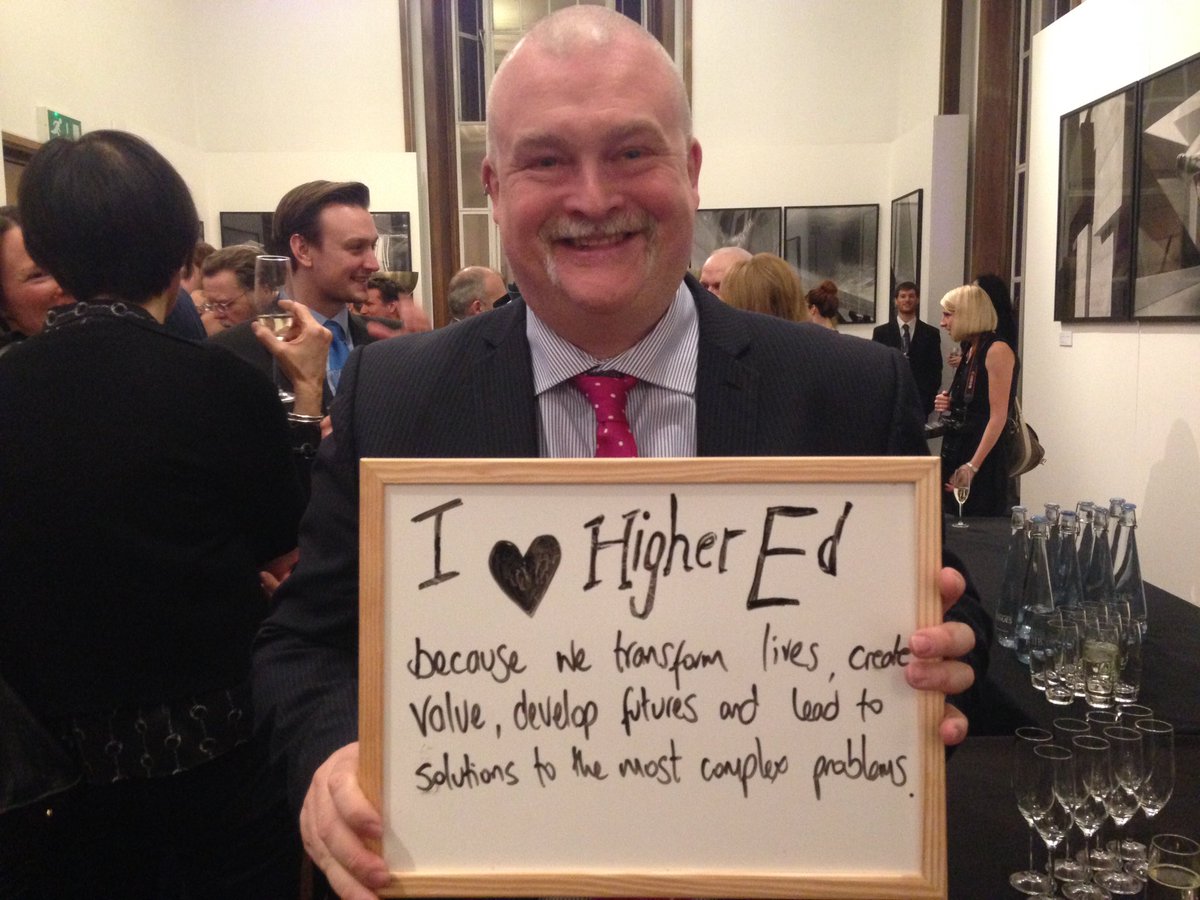 I ♥ Higher Ed
because we transform lives, create
value, develop futures and lead to
solutions to the most complex problems.